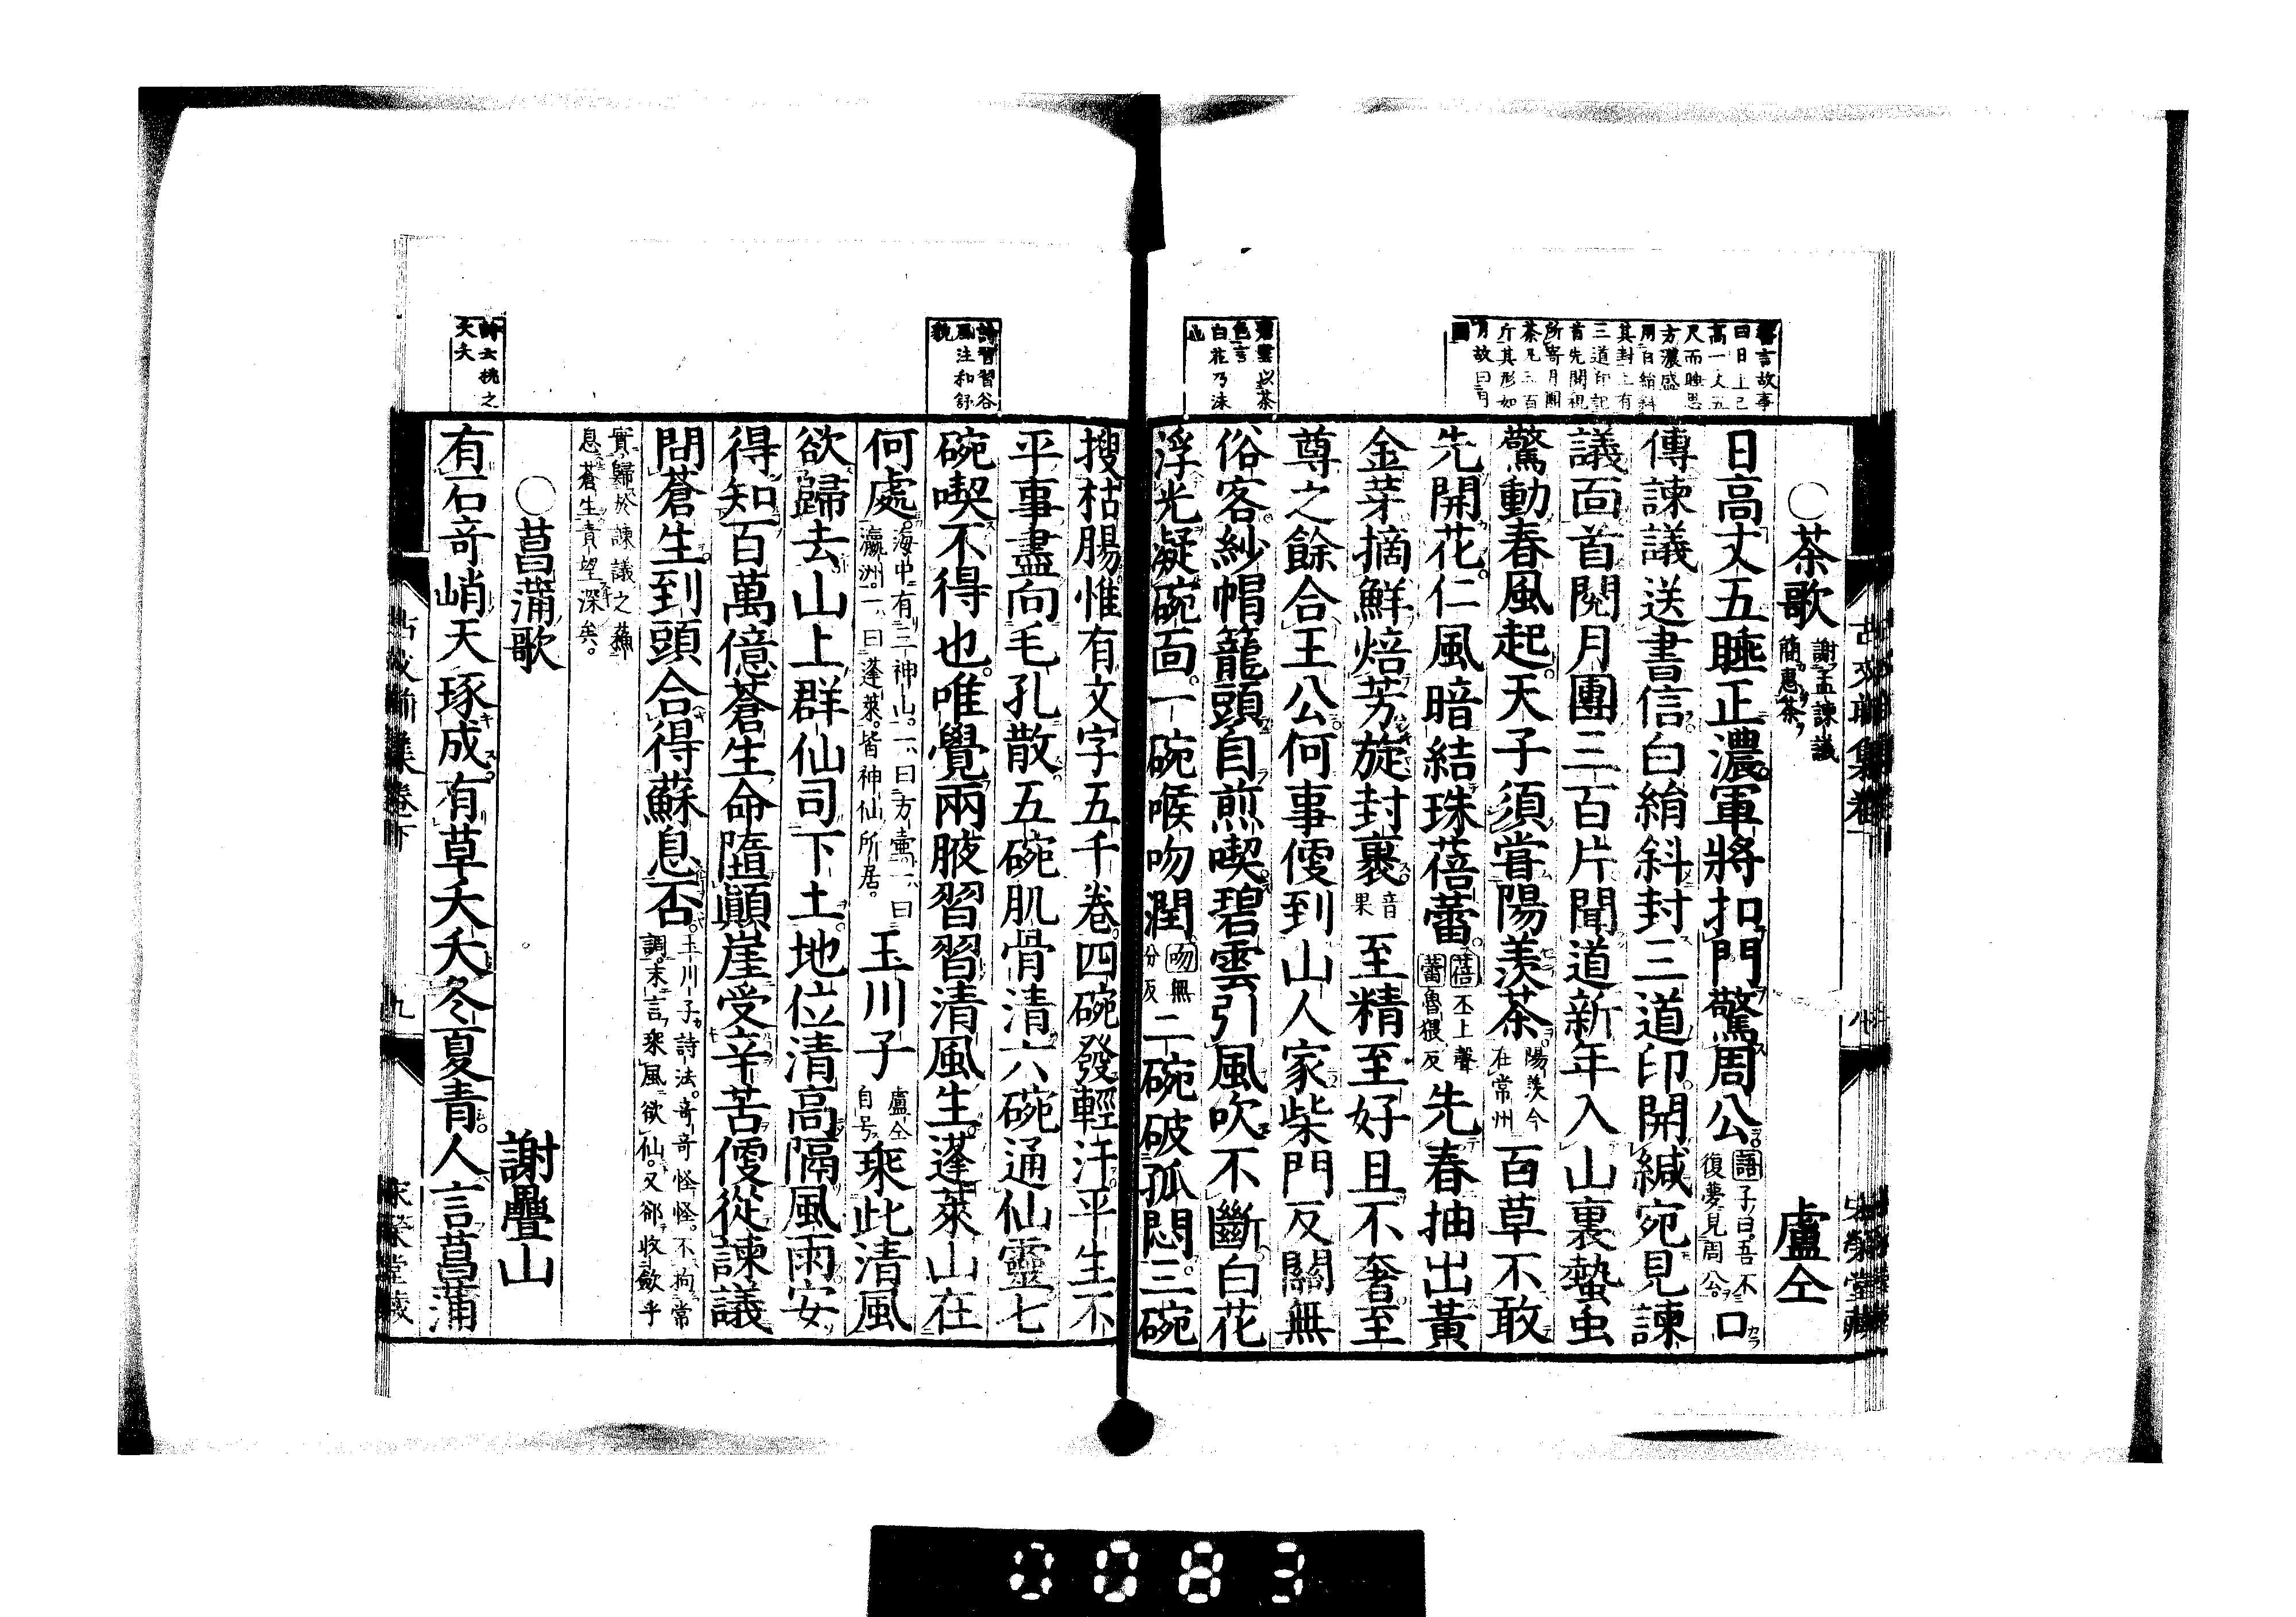 ○茶歌 謝孟諫議簡惠茶 盧仝
日高丈五睡正濃軍將扣門驚周公 語子曰吾不復夢見周公 口
傳諫議送書信白絹斜封三道印開緘宛見諫
議面首閱月團三百片聞道新年入山裏蟄虫
驚動春風起天子須甞陽羨茶 陽羨今在常州 百草不敢
先開花仁風暗結珠蓓蕾 蓓丕上聲蕾魯猥反 先春抽出黃
金芽摘鮮焙芳旋封裹 音果 至精至好且不奢至
尊之餘合王公何事便到山人家柴門反關無
俗客紗帽籠頭自煎喫碧雲引風吹不斷白花
浮光凝碗面一碗喉吻潤 吻無分反 二碗破孤悶三碗
搜枯腸惟有文字五千卷四碗發輕汗平生不
平事盡向毛孔散五碗肌骨清六碗通仙靈七
碗喫不得也唯覺兩腋習習清風生蓬萊山在
何處 海中有三神山一曰方壷一曰瀛洲一曰蓬萊皆神仙所居 玉川子 盧仝自号 乘此清風
欲歸去山上群仙司下土地位清高隔風雨安
得知百萬億蒼生命墮顚崖受辛苦便從諫議
問蒼生到頭合得蘇息否 玉川子詩法奇奇怪怪不拘常調末言乘風欲仙又郤收斂乎
實歸於諫議之蘇息蒼生責望深矣
○菖蒲歌 謝疊山
有石奇峭天琢成有草夭夭冬夏青人言菖蒲
書言故事
曰日上已
高一丈五
尺而睡思
方濃盛
用白絹斜
其封上有
三道印記
首先開視
所寄月團
茶凡三百
斤其形如
月故曰月
團
碧雲以茶
色言
白花乃沫
也
詩習習谷
風注和舒
貌
詩云桃之
夭夭
九